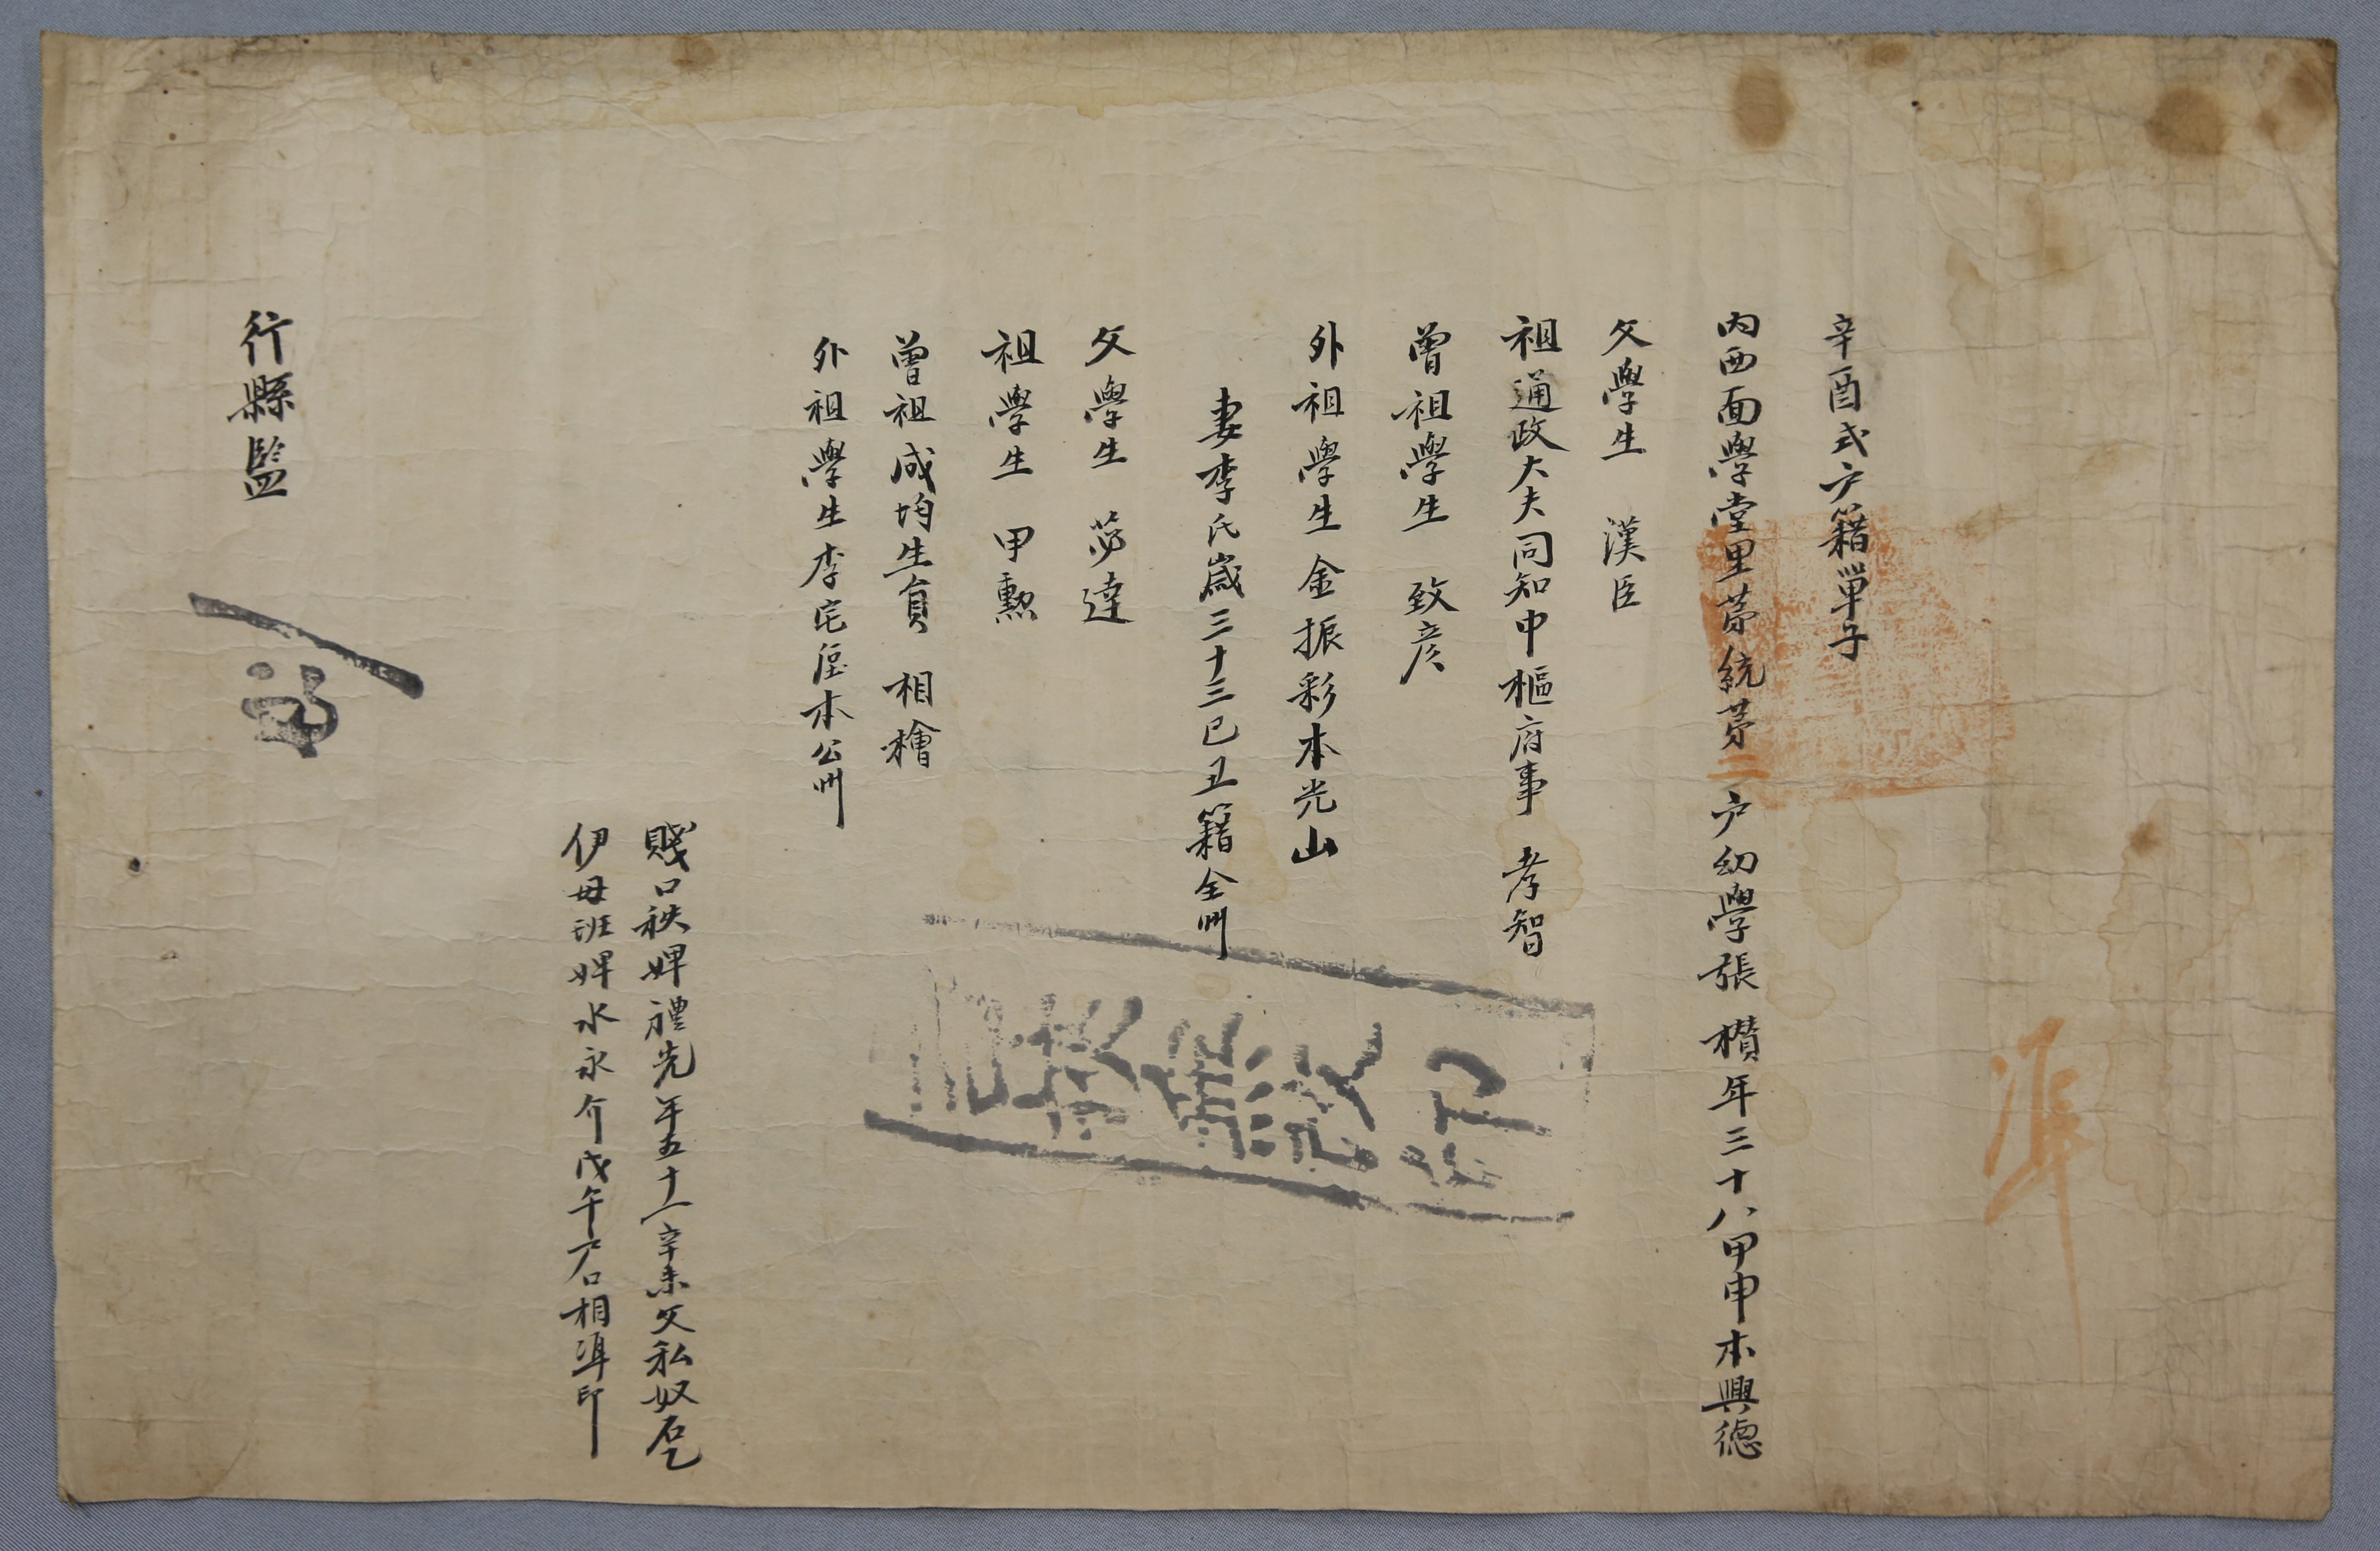 準
辛酉式户籍單子
內西面學堂里苐統苐二户幼學張 櫕年三十八甲申本興德
父學生 漢臣
祖通政大夫同知中樞府事 孝智
曾祖學生 致彦
外祖學生金振彩本光山
妻李氏歲三十三己丑籍全州
父學生 夢達
祖學生 甲勲
曾祖成均生員 相檜
外祖學生李宅 本公州
賤口秩婢禮先年五十一辛未父私奴
伊母班婢水永介戊午户口相準印
行縣監